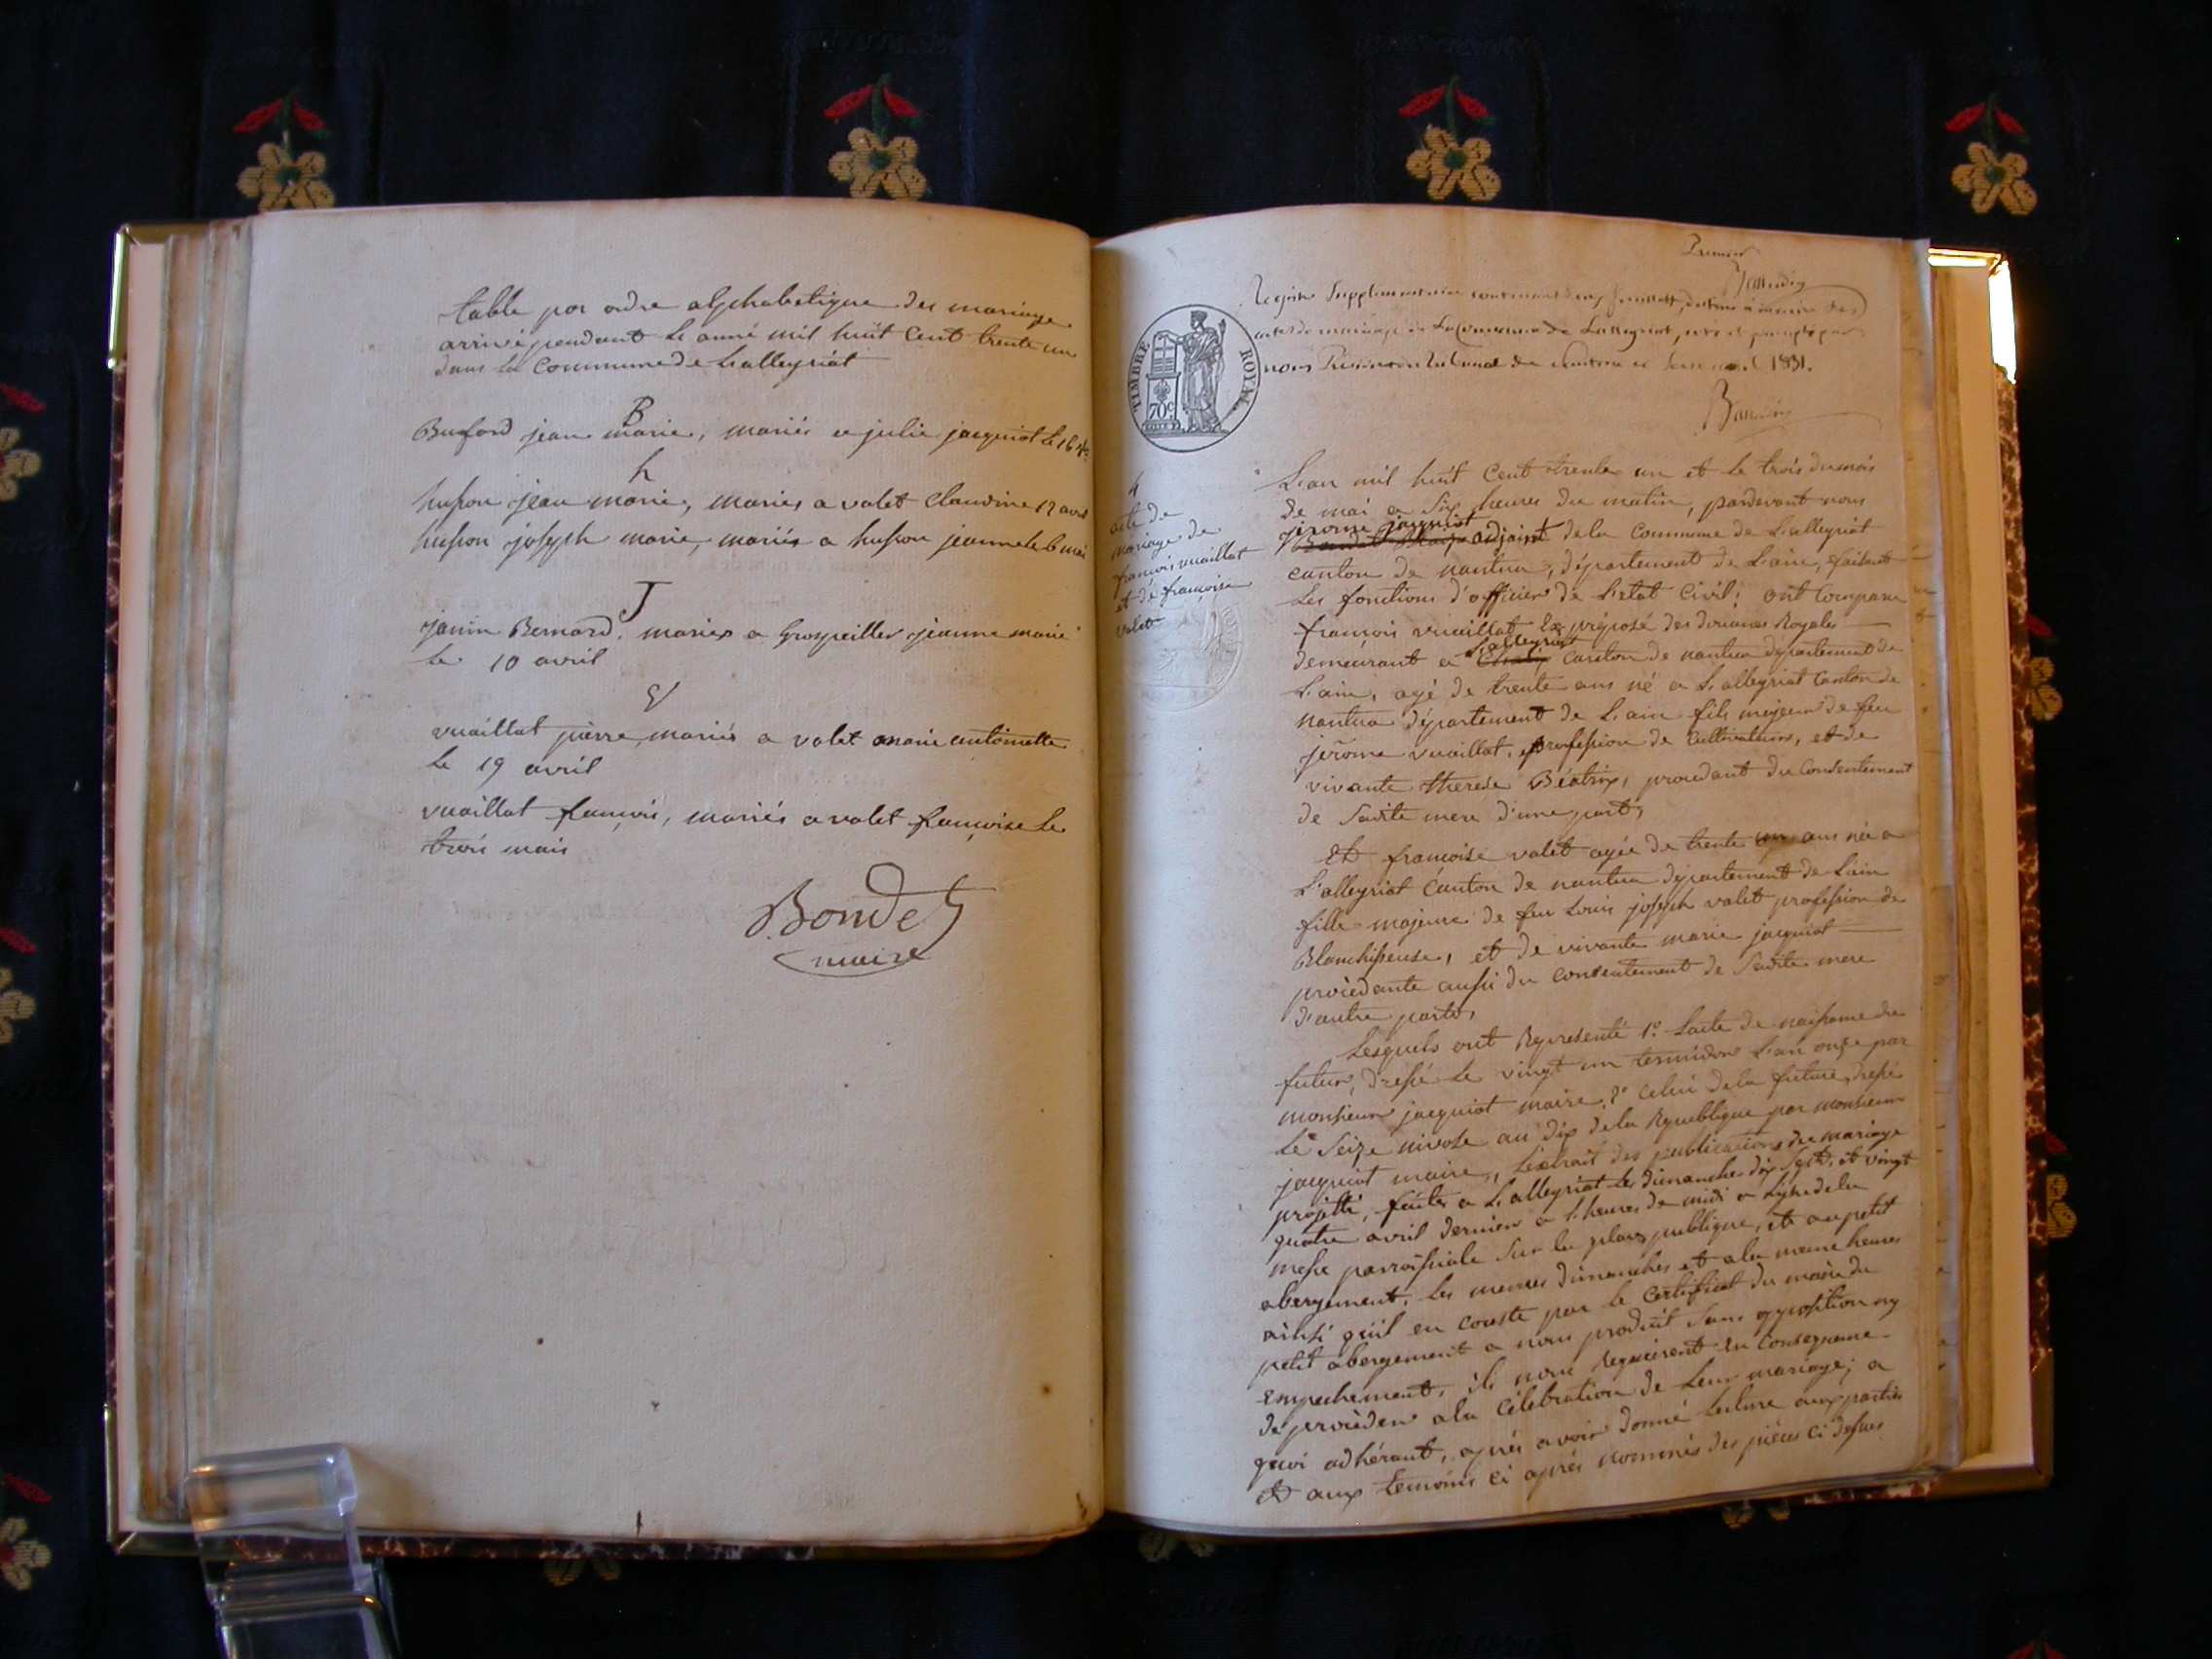 table par ordre alphabetique des mariage
arrivé pendant L'anné mil huit Cent trente un
dans la Commune de L'alleyriat
B
jean marie, mariés a julie jacquiot Le 16
h
husson jean marie, mariés a valet Claudine 12 avril
husson joseph marie, mariés a husson jeanne le 6 mai
J
janin Bernard, mariés a Grospeiller jeanne marie
le 10 avril
V
vuaillat pierre, mariés a valet marie antoinette
le 19 avril
vuaillat françois, mariés a valet françoise Le
trois mais
Bondet
maire
Premier
Registre Supplementaire contenant deux feuillets, destiné à inscrire les
actes de mariage de La Commune de Lalleyriat, coté et paraphé par
nous President du Tribunal de Nantua le 1831.
TIMBRE ROYAL
70c
4
acte de
mariage de
françois vuaillat
et de françoise
valet
L'an mil huit Cent trente un et le trois du mois
de mai a Six heures du matin, pardevant nous
jérome jacquiot
adjoint de la Commune de L'alleyriat
canton de nantua, département de L'ain, faisant
Les fonctions d'officier de L'etat Civil; ont Comparu
françois vuaillat Ex préposé des douanes Royales
L'alleyriat
demeurant a canton de nantua département de
L'ain, agé de trente ans né a L'alleyriat Canton de
nantua département de L'ain fils majeur de feu
jerome vuaillat, profession de Cultivateur, et de
vivante therese Béatrix, procedant du Consentement
de Sadite mere d'une part,
Et françoise valet agée de trente ans née a
L'alleyriat Canton de nantua département de L'ain
fille majeure de feu Louis joseph valet profession de
Blanchisseuse, et de vivante marie jacquiot
procedante aussi du Consentement de Sadite mere
d'autre parts,
Lesquels ont Representé 1º L'acte de naissance du
futur, dressé Le vingt un termidor L'an onze par
monsieur jacquiot maire, 2º Celui de la future, dressé
Le Seize nivose an dix de la Republique par monsieur
jacquiot maire, L'extrait des publications du mariage
projetté, faites a L'alleyriat Les dimanches dix Sept, et vingt
quatre avril dernier a heures de midi a L'issue de la
messe parroissiale Sur la place publique, et au petit
abergement, les memes dimanches et a la meme heures
ainsi qu'il en conste par le Certificat du maire du
petit abergement a nous produit Sans opposition ny
empechement, ils nous Requierent en Consequence
de proceder a la Célébration de Leur mariage; a
quoi adhérant, après avoir donné Lecture aux parties
et aux temoins ci après nommés des pièces ci dessus